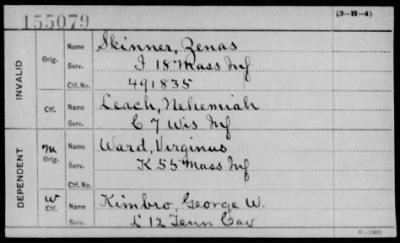 155079 (3-H-4)
INVALID Orig. Name Skinner, Zenas
Serv. I 18 Mass Inf
Ctf. No. 491835
Ctf. Name Leach, Nehemiah
Serv. C 7 Wis Inf
DEPENDENT M Orig. Name Ward, Virginus
Serv. K 55 Mass Inf
Ctf. No.
W Ctf. Name Kimbro, George W.
Serv. L 12 Tenn Cav